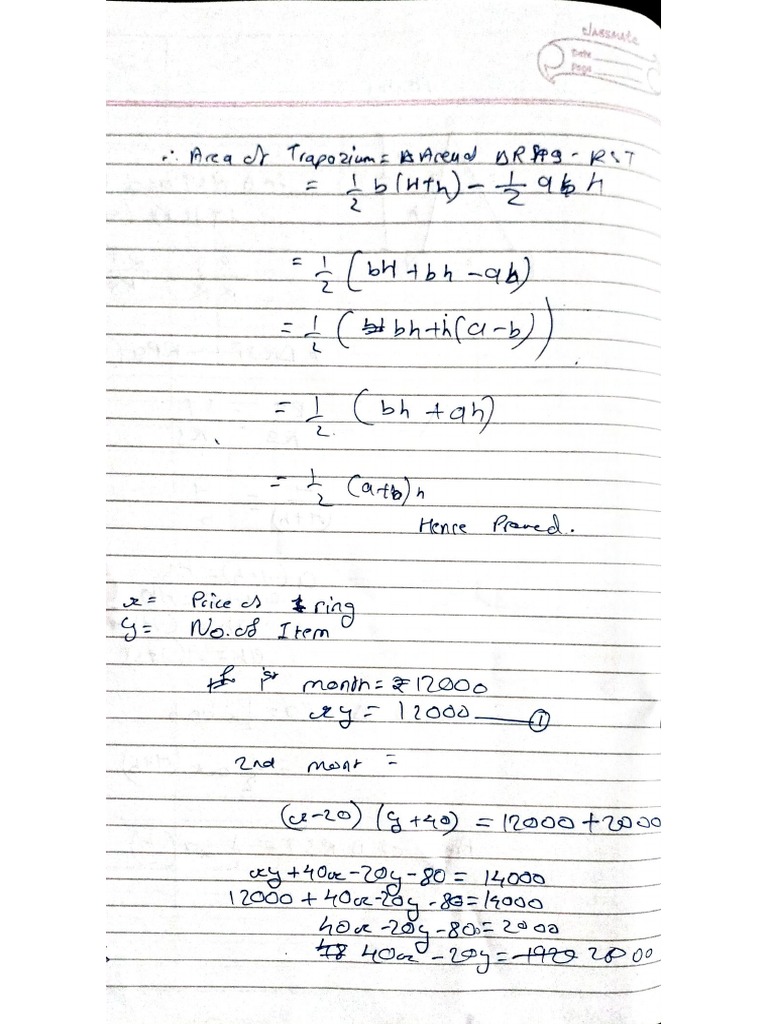 classmate
Date
Page
∴ Area of Trapozium = Area of ΔR - RST
= 1/2 b(H+h) - 1/2 a h
= 1/2 (bH + bh - ah)
= 1/2 (bh + h(a-b))
= 1/2 (bh + ah)
= 1/2 (a+b)h
Hence Proved.
x = Price of 1 ring
y = No. of Item
1st month = ₹12000
xy = 12000 — ①
2nd mont =
(x-20) (y+40) = 12000 + 2000
xy + 40x - 20y - 80 = 14000
12000 + 40x - 20y - 80 = 14000
40x - 20y - 800 = 2000
40x - 20y = 2800